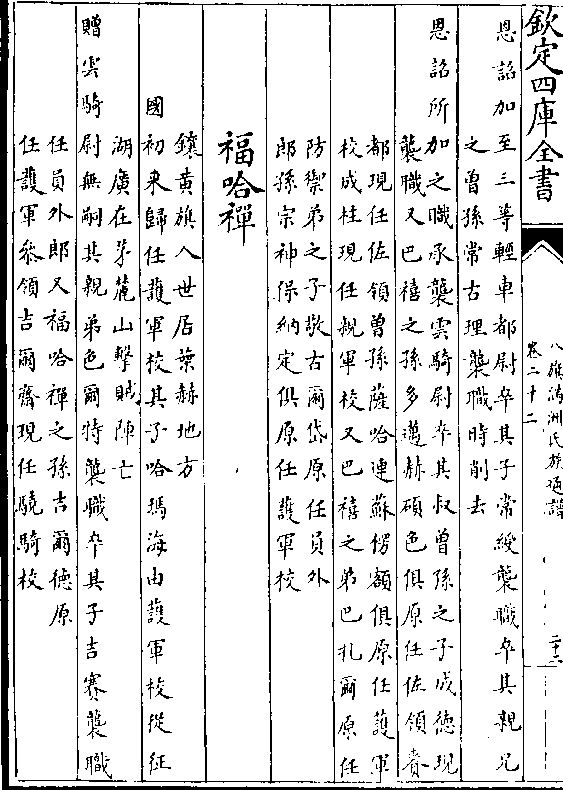 欽定四庫全書
八旗滿洲氏族通譜
卷二十二
二十二
恩詔加至三等輕車都尉卒其子常綬襲職卒其親兄
之曾孫常古理襲職時削去
恩詔所加之職承襲雲騎尉卒其叔曾孫之子成德現
襲職又巴禧之孫多邁赫碩色俱原任佐領賚
都現任佐領曾孫薩哈連蘇愣額俱原任護軍
校成桂現任親軍校又巴禧之弟巴札爾原任
防禦弟之子敬古爾岱原任員外
郎孫宗神保納定俱原任護軍校
福哈禪
鑲黄旗人世居葉赫地方
國初來歸任護軍校其子哈瑪海由護軍校從征
湖廣在茅麓山擊賊陣亡
贈雲騎尉無嗣其親弟色爾特襲職卒其子吉賽襲職
任員外郎又福哈禪之孫吉爾德原
任護軍叅領吉爾齋現任驍騎校